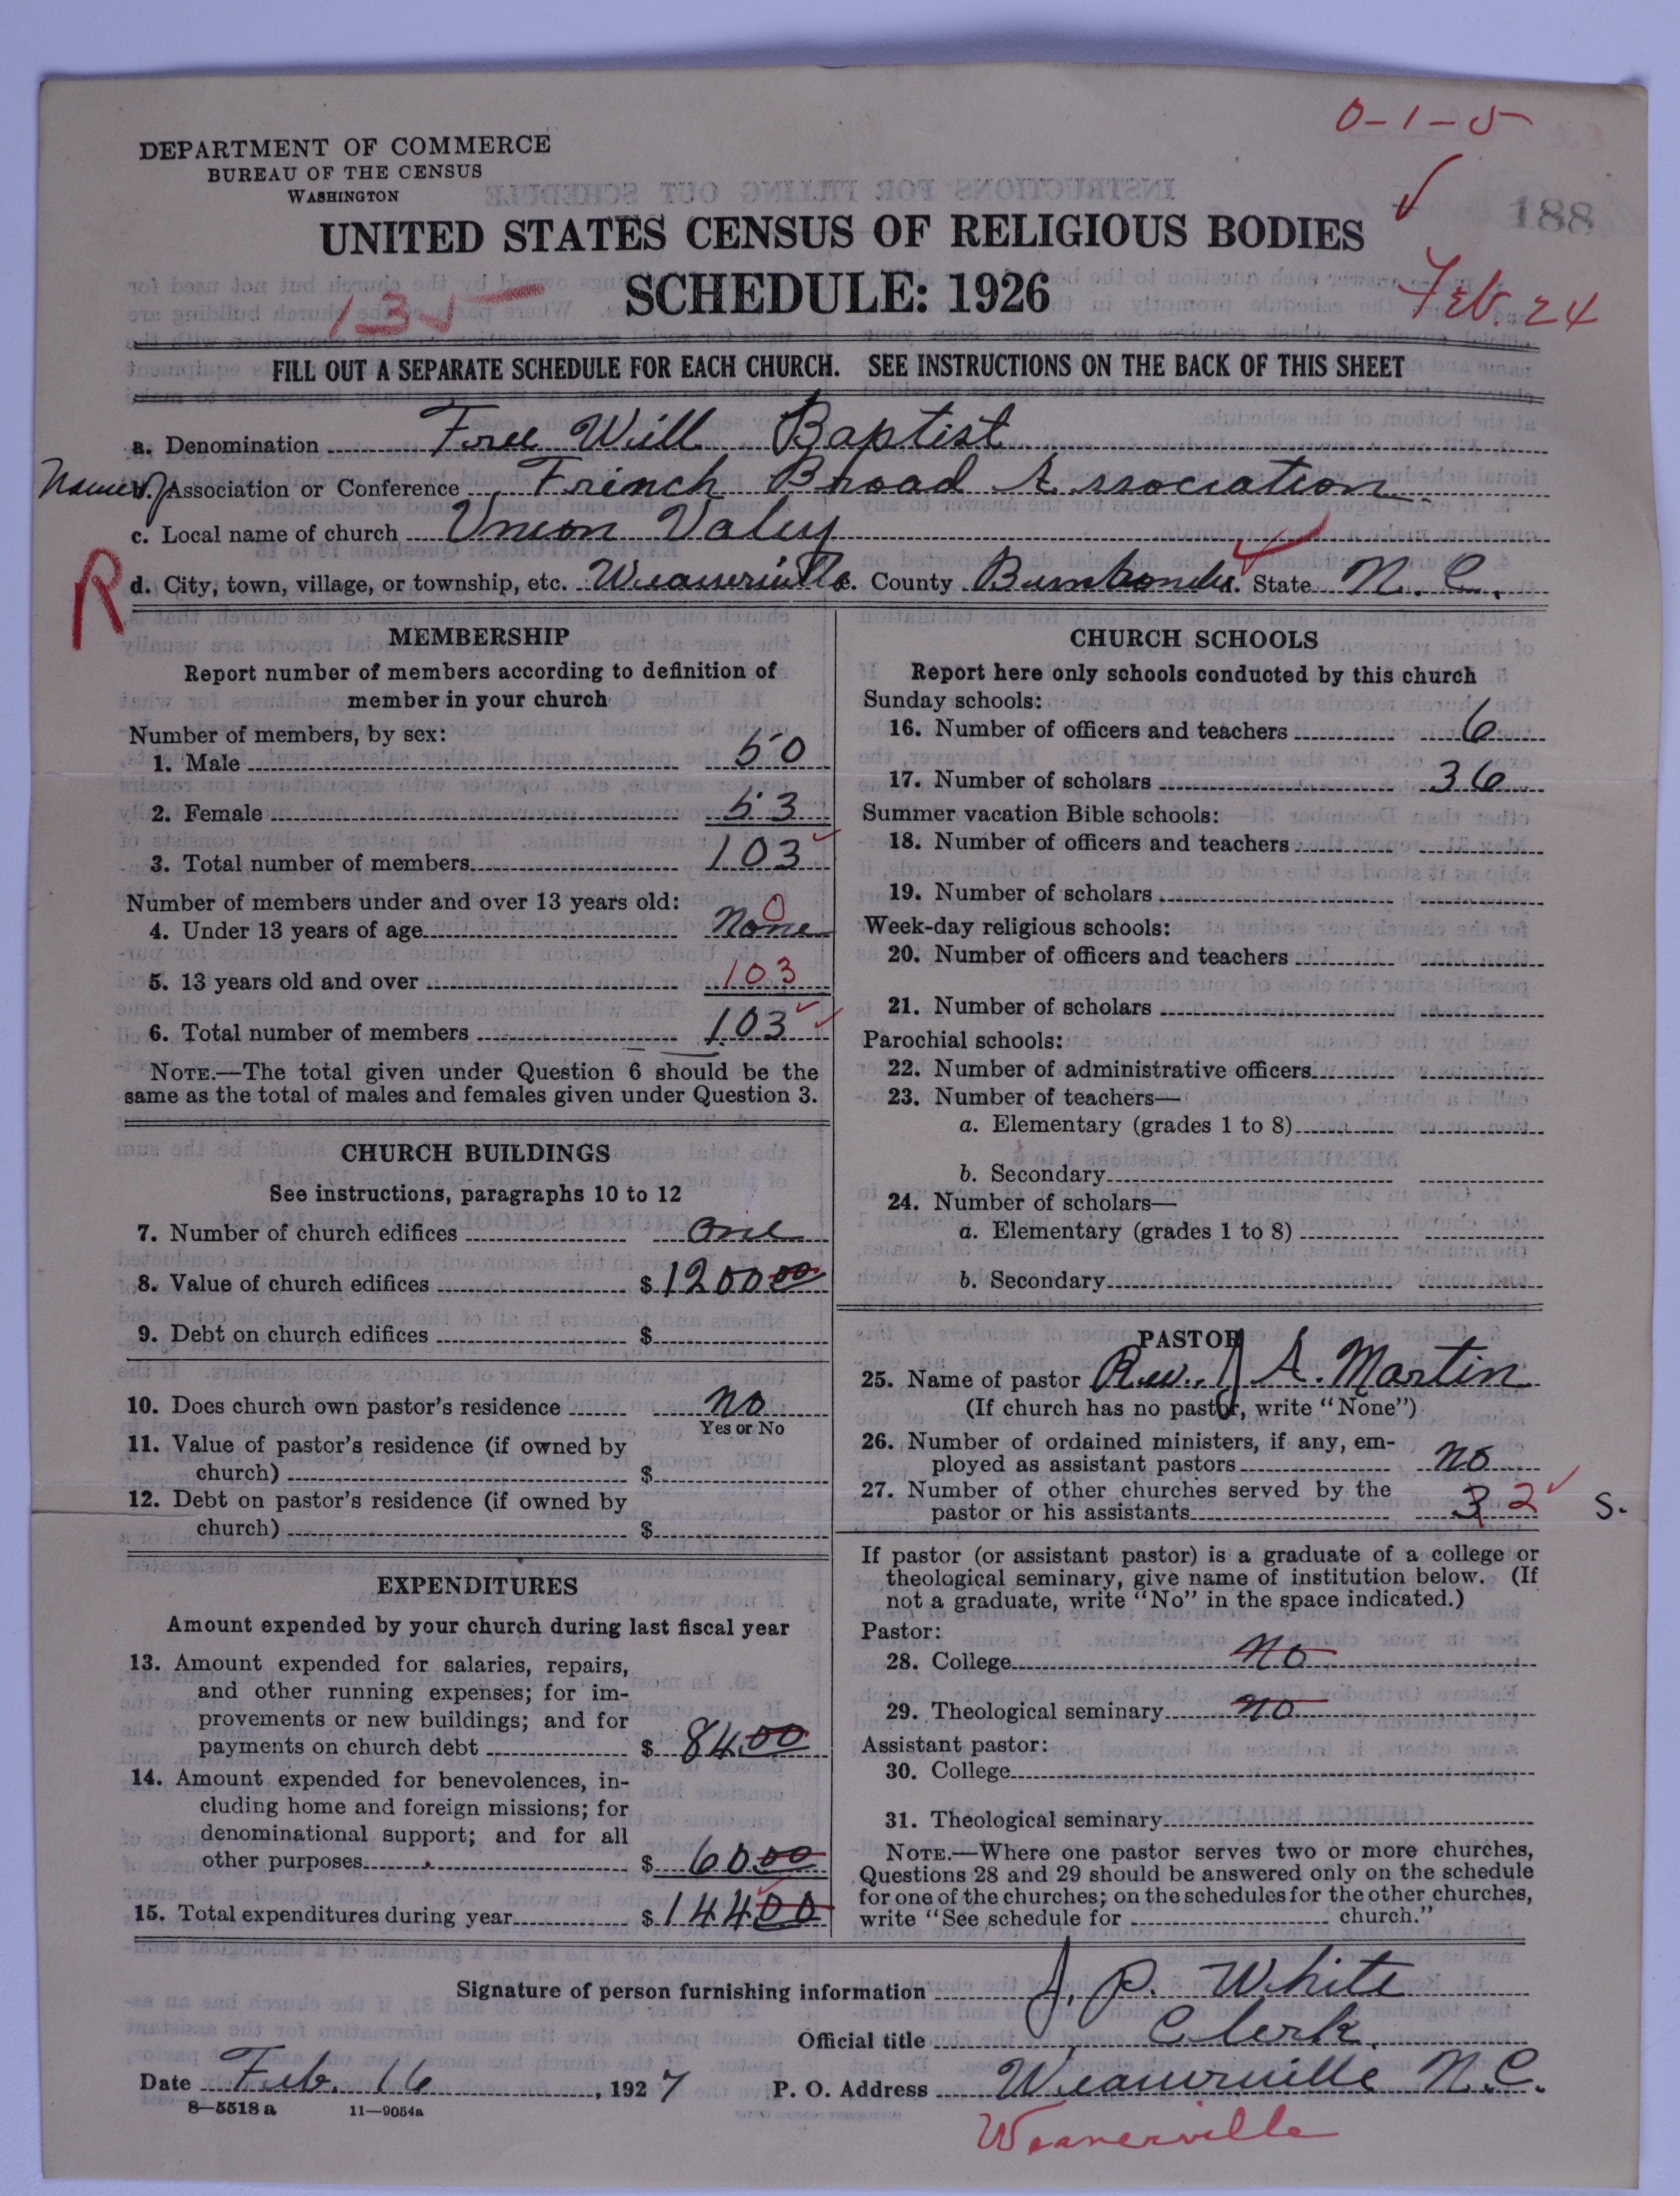 0-1-5
DEPARTMENT OF COMMERCE
BUREAU OF THE CENSUS
WASHINGTON
188
UNITED STATES CENSUS OF RELIGIOUS BODIES
SCHEDULE: 1926
135
Feb. 24
FILL OUT A SEPARATE SCHEDULE FOR EACH CHURCH. SEE INSTRUCTIONS ON THE BACK OF THIS SHEET
a. Denomination Free Will Baptist
Name of Association or Conference French Broad Association
c. Local name of church Union Valey
R
d. City, town, village, or township, etc. Weaverville e. County Buncombe d. State N. C.
MEMBERSHIP
Report number of members according to definition of
member in your church
Number of members, by sex:
1. Male 50
2. Female 53
3. Total number of members 103
Number of members under and over 13 years old:
4. Under 13 years of age None 0
5. 13 years old and over 103
6. Total number of members 103
NOTE.—The total given under Question 6 should be the
same as the total of males and females given under Question 3.
CHURCH BUILDINGS
See instructions, paragraphs 10 to 12
7. Number of church edifices One
8. Value of church edifices $ 1200 00
9. Debt on church edifices $
10. Does church own pastor's residence No
Yes or No
11. Value of pastor's residence (if owned by
church) $
12. Debt on pastor's residence (if owned by
church) $
EXPENDITURES
Amount expended by your church during last fiscal year
13. Amount expended for salaries, repairs,
and other running expenses; for im-
provements or new buildings; and for
payments on church debt $ 84.00
14. Amount expended for benevolences, in-
cluding home and foreign missions; for
denominational support; and for all
other purposes $ 60 00
15. Total expenditures during year $ 144 00
CHURCH SCHOOLS
Report here only schools conducted by this church
Sunday schools:
16. Number of officers and teachers 6
17. Number of scholars 36
Summer vacation Bible schools:
18. Number of officers and teachers
19. Number of scholars
Week-day religious schools:
20. Number of officers and teachers
21. Number of scholars
Parochial schools:
22. Number of administrative officers
23. Number of teachers—
a. Elementary (grades 1 to 8)
b. Secondary
24. Number of scholars—
a. Elementary (grades 1 to 8)
b. Secondary
PASTOR
25. Name of pastor Rev. J A. Martin
(If church has no pastor, write "None")
26. Number of ordained ministers, if any, em-
ployed as assistant pastors No
27. Number of other churches served by the
pastor or his assistants 3 2
S.
If pastor (or assistant pastor) is a graduate of a college or
theological seminary, give name of institution below. (If
not a graduate, write "No" in the space indicated.)
Pastor:
28. College No
29. Theological seminary No
Assistant pastor:
30. College
31. Theological seminary
NOTE.—Where one pastor serves two or more churches,
Questions 28 and 29 should be answered only on the schedule
for one of the churches; on the schedules for the other churches,
write "See schedule for church."
Signature of person furnishing information J. P. White
Official title Clerk
Date Feb. 16, 1927 P. O. Address Weaverville N.C.
8—5518a 11—9054a
Weaverville